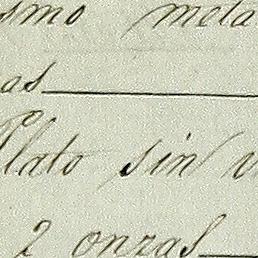 smo meta
as
Plato sin
2 onzas